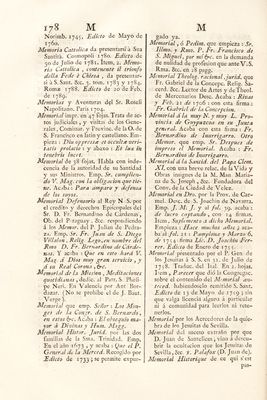 178 M M
Norimb. 1745. Edicto de Mayo de 1760.
Memoria Catolica da presentarsi à Sua Santità. Cosmopoli 1780. Edicto de 30 de Julio de 1781. Item, 2. Memoria Catolica, contenente il trionfo della Fede è Chiesa, da presentarsi à S. Sant. &c. 3. tom. 1783 y 1784. Roma 1788. Edicto de 20 de Feb. de 1789.
Memorias y Aventuras del Sr. Roseli Napolitano. París 1704.
Memorial imp. en 47 fojas. Trata de actos judiciales, y visitas de los Generales, Cominar. y Provinc. de la O. de S. Francisco en latin y castellano. Empieza: Diu oppressa et occulta veritatis prolatio: y abaxo: Et lux in tenebris lucet.
Memorial de 38 fojas. Habla con independencia de la autoridad de su Santidad y sus Ministros. Emp. Sr. cumpliendo V. Mag. con la obligacion que tiene. Acaba: Para amparo y defensa de los tuyos.
Memorial Defensorio al Rey N. S. por el credito y derechos Episcopales del Sr. D. Fr. Bernardino de Cárdenas, Ob. del Paraguay. &c. respondiendo à los Memor. del P. Julian de Pedraza. Emp. Sr. Fr. Juan de S. Diego Villalon, Relig. Lego, en nombre del Rmo. D. Fr. Bernardino de Cárdenas. Y acaba: Que en esto hará V. Mag. à Dios muy gran servicio, y à su Real Corona, &c.
Memorial de la Mission, Meditaciones quotidianas, dedic. al Ilmo. S. Phelipe Neri. En Valencia por Ant. Bordazar. (No se prohibe el de J. Baut. Verge.)
Memorial que emp. Señor: Los Monges de la Congr. de S. Bernardo, en estas &c. Acaba: El obsequio mayor à Divinas y Hum. Magg.
Memorial Histor. Jurid. por las dos familias de la Sma. Trinidad. Emp. En el año 1673, y acaba: Que el P. General de la Merced. Recogido por Edicto de 1733; se permite expurgado ya.
Memorial, ó Pedim. que empieza: Sr. Illmo. y Rmo. P. Fr. Francisco de S. Miguel, por mi &c. en la demanda de nulidad de profesion que ante V. S. Rma. &c. en 28 pagg.
Memorial Theolog. racional, jurid. que Fr. Gabriel de la Concepc. Relig. Sacerd. &c. Lector de Artes y de Theol. de Mercenarios Desc. Acaba: Rivas y Feb. 21 de 1726 con una firma: Fr. Gabriel de la Concepcion.
Memorial à la muy N. y muy L. Provincia de Guypuzcoa en su Junta general. Acaba con una firma: Fr. Bernardino de Inurrigarro. Otro Memor. que emp. Sr. Despues de impreso el Memorial. Acaba: Fr. Bernardino de Inurrigarro.
Memorial à la Santid. del Papa Clem. XI con una breve relacion de la Vida y Obras impresas de la M. Mar. Rosend. de S. Joseph, &c. Fundadora del Conv. de la Ciudad de Velez.
Memorial en Dro. por la Prov. de Carmel. Desc. de S. Joachin de Navarra. Emp. J. M. J. y al fol. 59. acaba: de lucro captando, con 14 firmas. Item, Suplemento à dicho Memorial. Empieza: Hace mucho años; acaba fol. 20: Pamplona y Marzo 6. de 1714: firma: Ldo. D. Joachin Ferrer. Edicto de Enero de 1715.
Memorial presentado por el P. Gen. de los Jesuitas à S. S. en 31 de Julio de 1758. Traduc. del Ital. En 2. hojas. Item, Parecer que dió la Congregacion sobre el contenido del dicho Memorial, habiendoselo remitido S. Sant. Edicto de 13 de Mayo de 1759; sin que valga licencia alguna à particular ni à comunidad para leerlos ni retenerlos.
Memorial por los Acreedores de la quiebra de los Jesuitas de Sevilla.
Memorial del suceso extraño por que D. Juan de Santelices, vino à descubrir la ocultacion que los Jesuitas de Sevilla, &c. v. Palafox (D. Juan de).
Memorial Historique de ce qui s'est
pas-